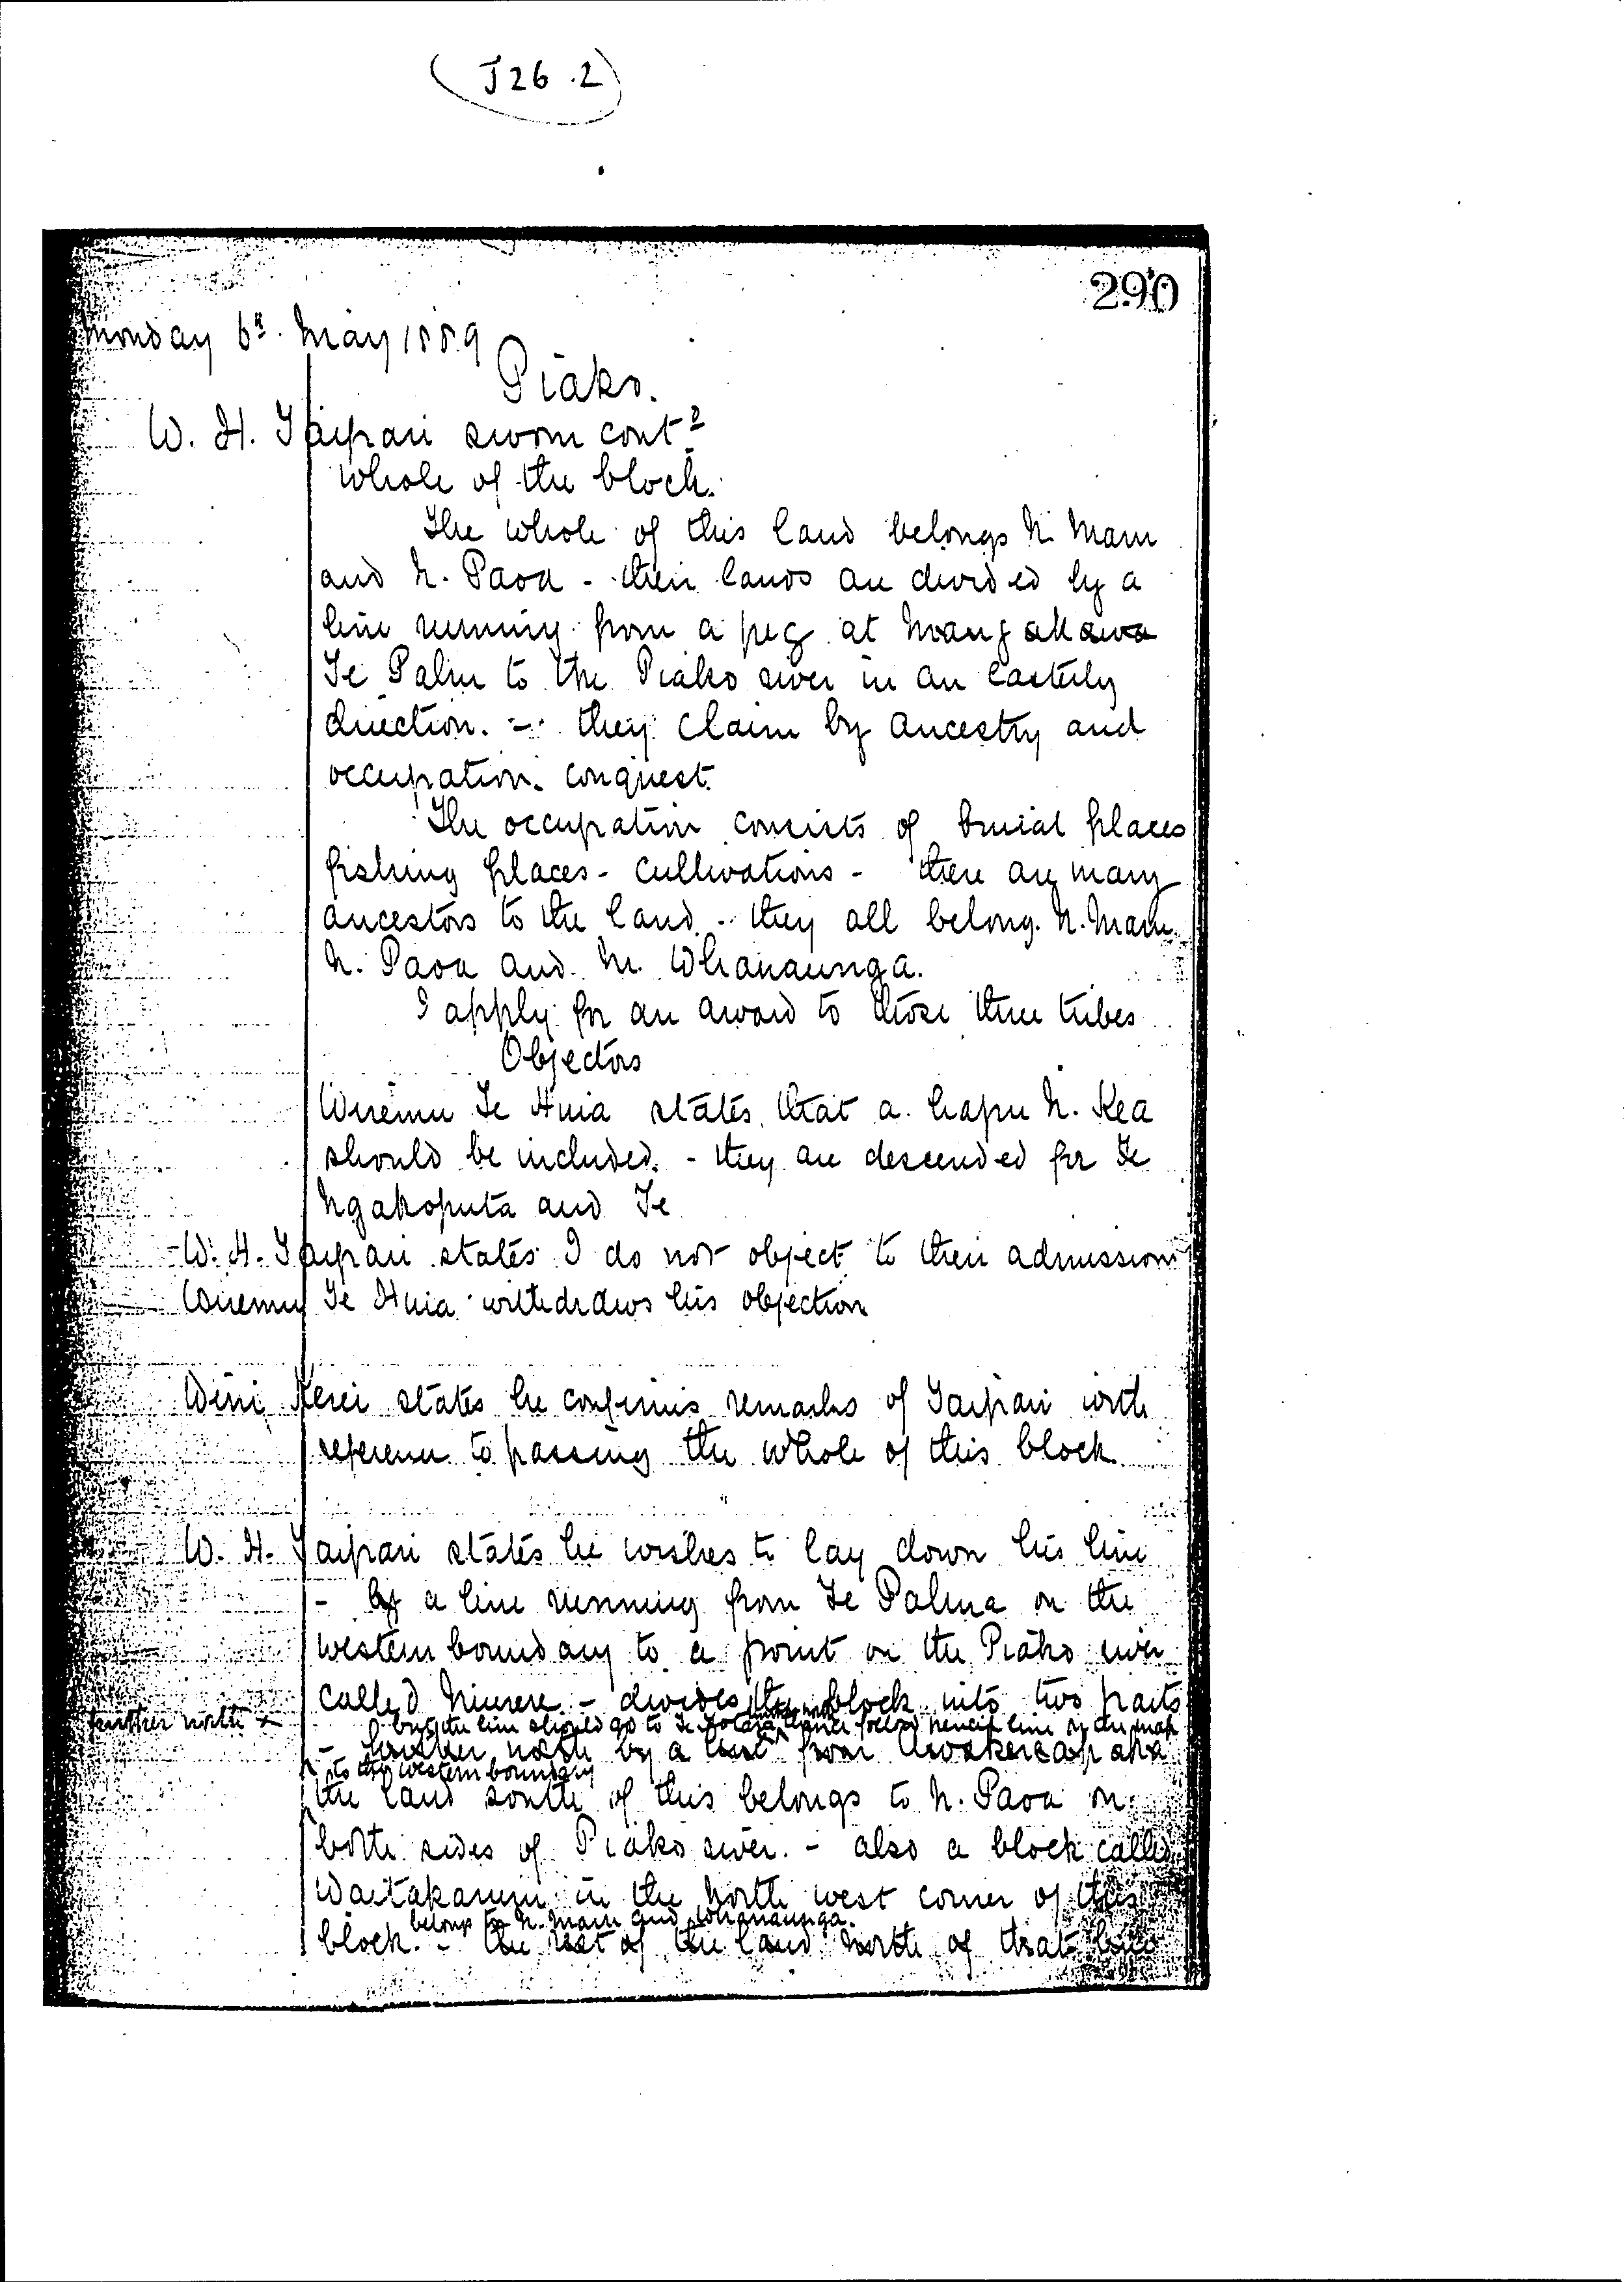 (J26.2)
290
Monday 6th. May 1889
Piako.
W. H. Taipari sworn contd
whole of the block.
The whole of this land belongs N. Maru
and N. Paoa - their lands are divided by a
line running from a peg at
Te Palu to the Piako river in an easterly
direction. - they claim by ancestry and
occupation. conquest.
The occupation consists of burial places
fishing places - cultivations - there are many
ancestors to the land - they all belong. N. Maru.
N. Paoa and N. Whanaunga.
I apply for an award to those three tribes
Objectors
Wiremu Te Huia states that a hapu N. Kea
should be included. - they are descended for Te
Ngakoputa and Te
W. H. Taipari states I do not object to their admission
Wiremu Te Huia withdraws his objection
Wini Kerei states he confirms remarks of Taipari with
reference to passing the whole of this block.
W. H. Taipari states he wishes to lay down his line
- by a line running from Te Palua on the
western boundary to a point on the Piako river
called - divides the block into two parts
further north x
but the line should go to Te thence follow pencil line on the map
- further north by a line from
to the western boundary
the land south of this belongs to N. Paoa on
both sides of Piako river. - also a block called
Waitakaruru in the north west corner of this
belongs to N. Maru and Whanaunga.
block. - the rest of the land north of that line